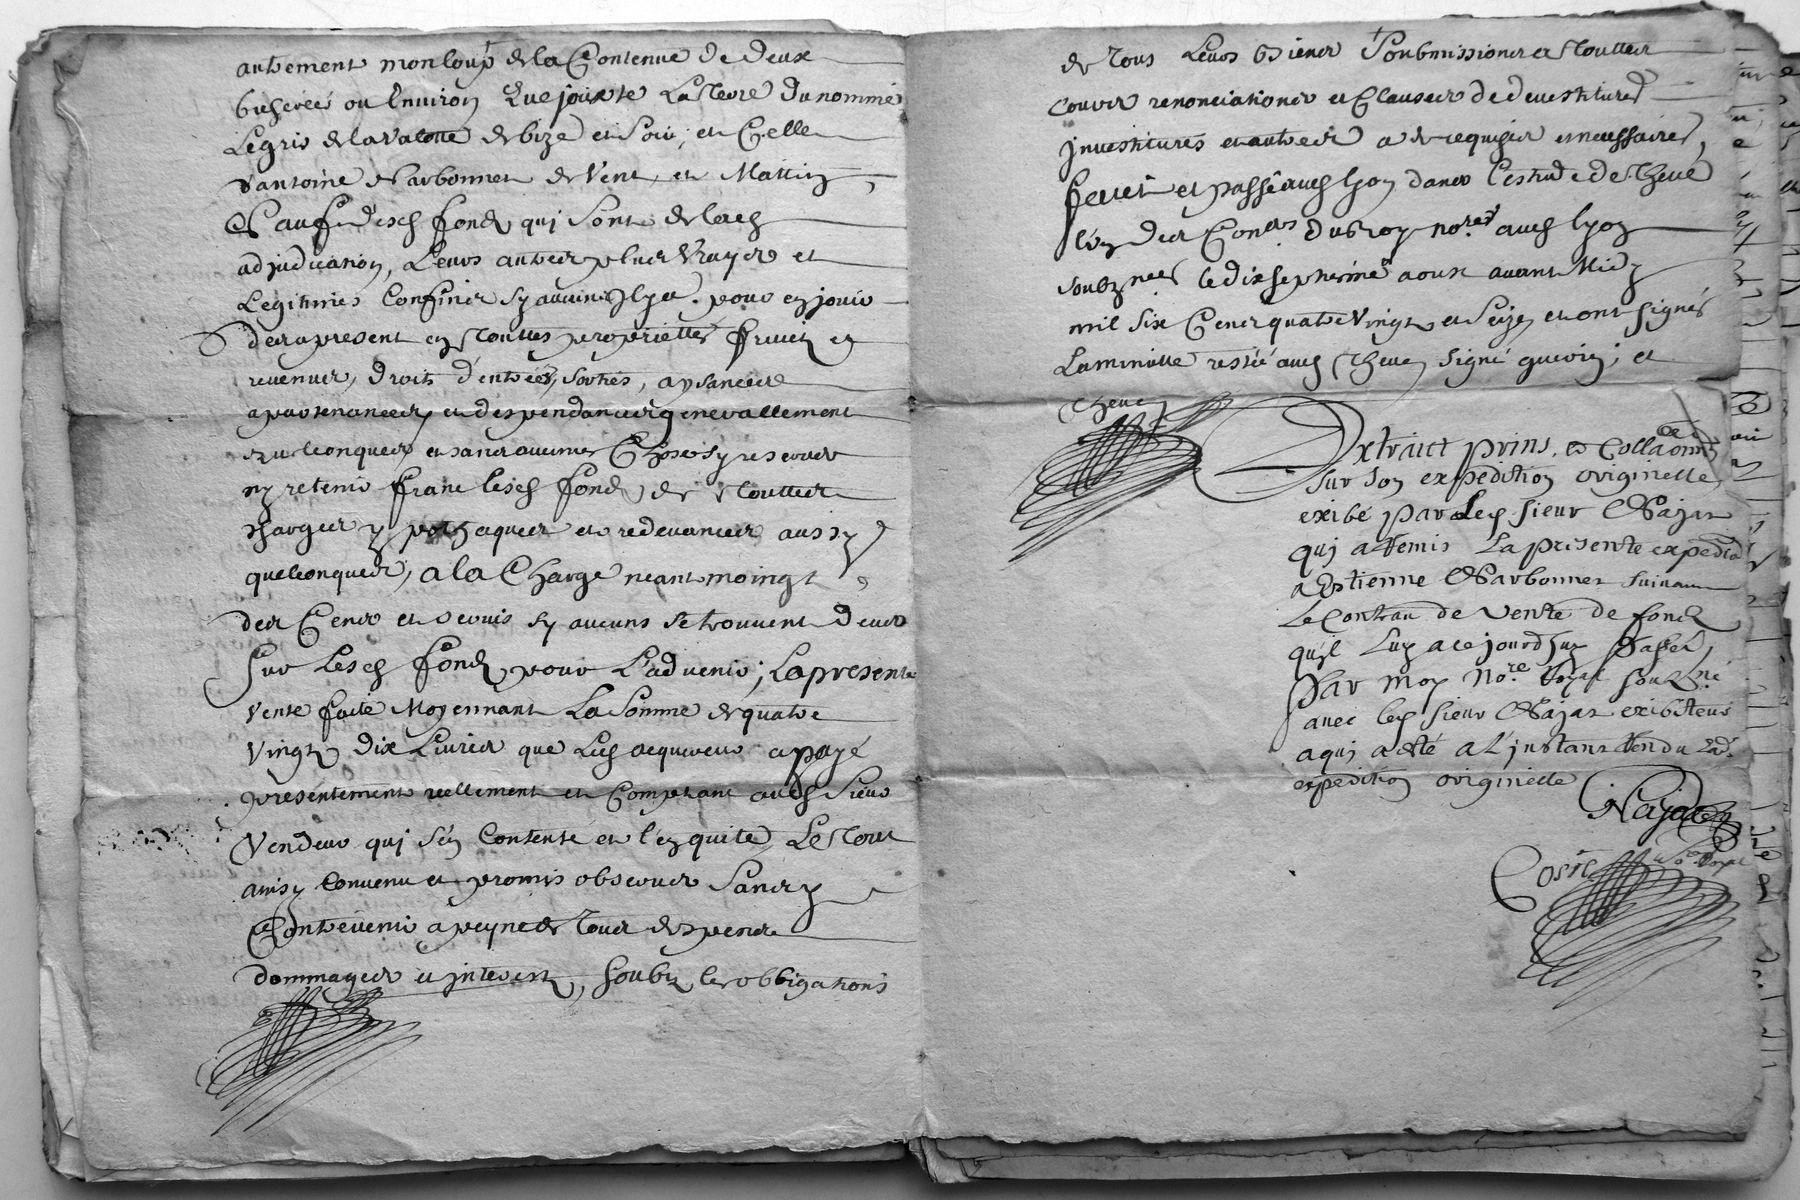 autrement monloup de la Contenue de deux
bicherées ou Environ Que jouxte La Terre du nommé
Legris de lavalotte de bize et Soir, et Celle
d'antoine Narbonnet de Vent et Mattin,
Sauf desd fondz quj Sont de lad
adjudication, Leurs autres plus Vrayes et
Legitimes Confines sy aucuns Jlya. pour en jouir
des apresent en Touttes proprietter fruictz et
revenus, droits d'entrées, sorties, aysances
apartenances et despendances generallement
quelconques et sans aucunes Choses y reserver
ny retenir franc lesd fondz de Touttes
charges ypothaques et redevances aussy
quelconques, a la Charge neantmoingt
des Cens et servis sy aucuns se trouvent deus
sur Lesd fondz pour L'advenir; La presente
vente faite Moyennant La Somme de quatre
vingt dix Livres que Led acquereur a payé
presentement reellement et Comptant aud Sieur
Vendeur quj s'en Contente et l'en quite, Le Tout
ainsy Convenu et promis observer Sans y
Contrevenir a peyne de Tous despens
dommages et jnterest, soubz les obbigations
de Tous Leurs Biens Soubmissions et Touttes
Cours renonciations et Clauses de devestitures
jnvestitures et autres a de requises et necessaires,
faict et passé aud lyon dans l'estude de Theve
l'un des Cons. du Roy nores aud lyon
soubznes le dixseptieme aoust avant Midy
mil six Cens quatre Vingt et Seize, et ont signés
La minutte restée aud Theve signé guerin; et
Theve
Extraict prins, et Collaonné
sur son expedition originelle
exibé par Led sieur Najat
quj a remis La presente expedion
a Estienne Narbonnet suivant
Le Contrat de Vente de fondz
qu'il Luy a ce jourdhuy Passer,
Par moy Nore Royal soubzné
avec led sieur Najat exibiteur
a quj a Eté a L'jnstant Rendu Lad.
expedition originelle
Najat
Coste Nore Royal